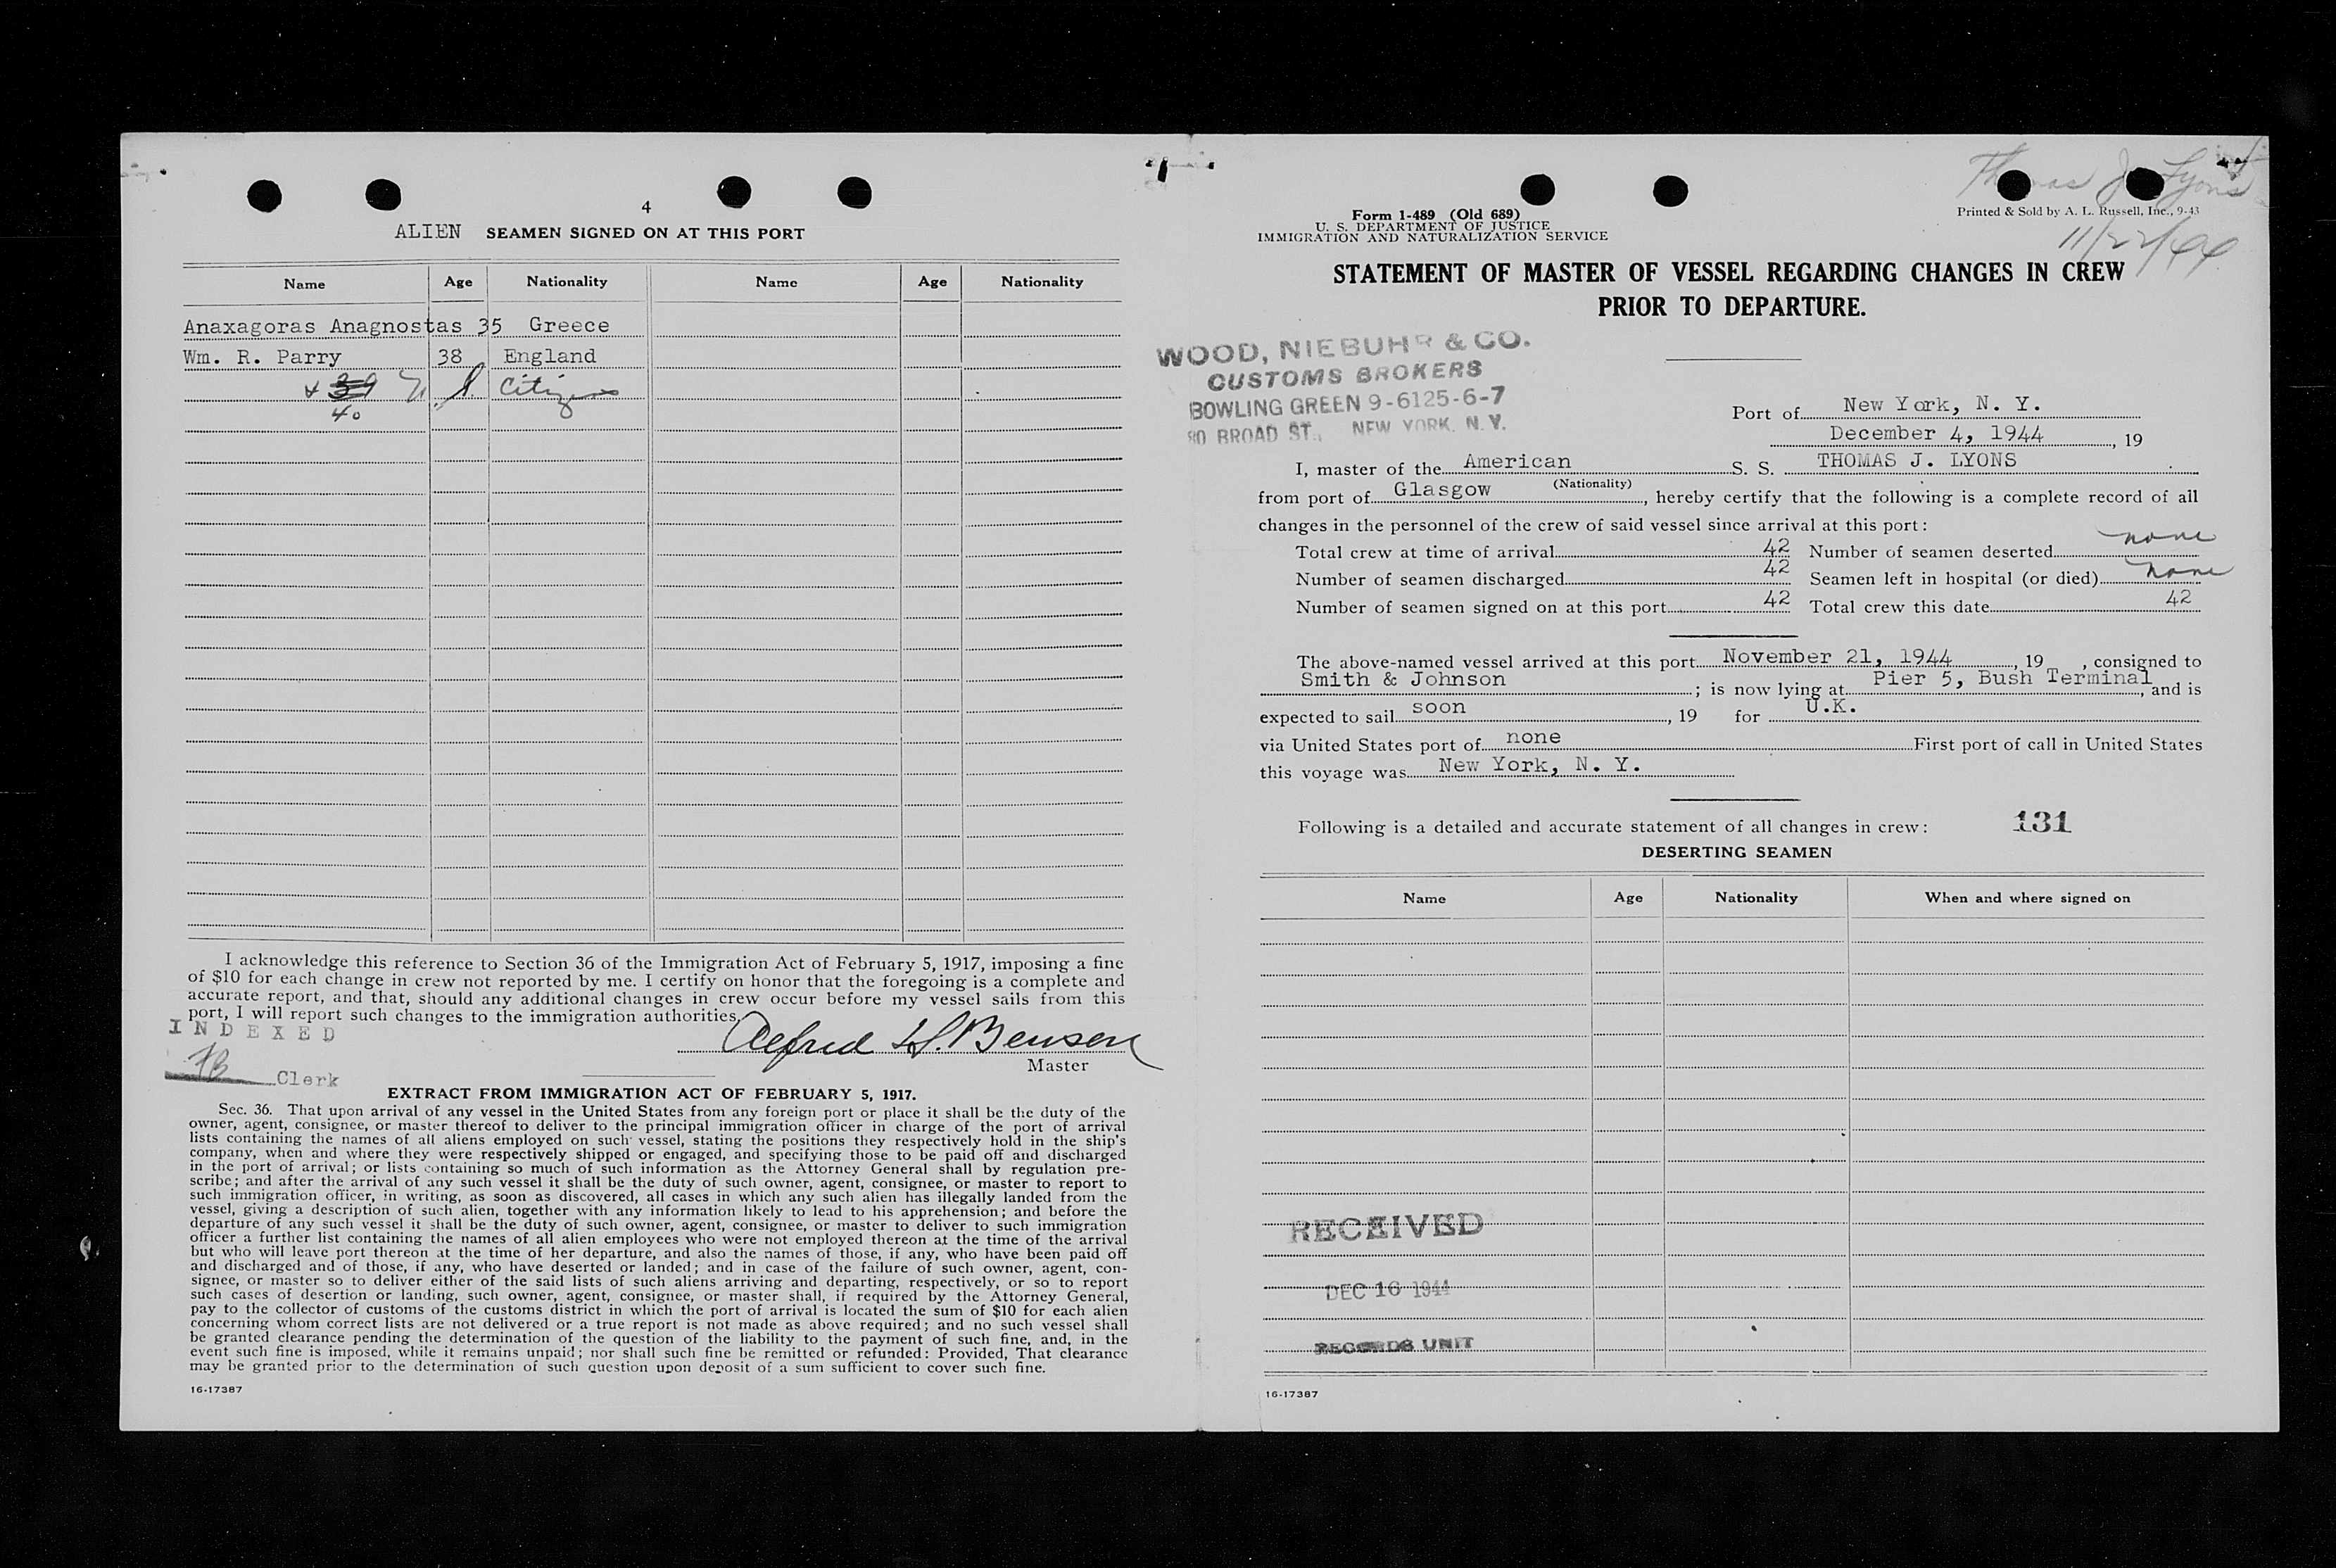 4
ALIEN SEAMEN SIGNED ON AT THIS PORT
Name Age Nationality Name Age Nationality
Anaxagoras Anagnostas 35 Greece
Wm. R. Parry 38 England
+ 39 U. S. Citizens
40
I acknowledge this reference to Section 36 of the Immigration Act of February 5, 1917, imposing a fine
of $10 for each change in crew not reported by me. I certify on honor that the foregoing is a complete and
accurate report, and that, should any additional changes in crew occur before my vessel sails from this
port, I will report such changes to the immigration authorities.
INDEXED
Alfred H. Bensen
Master
FB Clerk
EXTRACT FROM IMMIGRATION ACT OF FEBRUARY 5, 1917.
Sec. 36. That upon arrival of any vessel in the United States from any foreign port or place it shall be the duty of the
owner, agent, consignee, or master thereof to deliver to the principal immigration officer in charge of the port of arrival
lists containing the names of all aliens employed on such vessel, stating the positions they respectively hold in the ship's
company, when and where they were respectively shipped or engaged, and specifying those to be paid off and discharged
in the port of arrival; or lists containing so much of such information as the Attorney General shall by regulation pre-
scribe; and after the arrival of any such vessel it shall be the duty of such owner, agent, consignee, or master to report to
such immigration officer, in writing, as soon as discovered, all cases in which any such alien has illegally landed from the
vessel, giving a description of such alien, together with any information likely to lead to his apprehension; and before the
departure of any such vessel it shall be the duty of such owner, agent, consignee, or master to deliver to such immigration
officer a further list containing the names of all alien employees who were not employed thereon at the time of the arrival
but who will leave port thereon at the time of her departure, and also the names of those, if any, who have been paid off
and discharged and of those, if any, who have deserted or landed; and in case of the failure of such owner, agent, con-
signee, or master so to deliver either of the said lists of such aliens arriving and departing, respectively, or so to report
such cases of desertion or landing, such owner, agent, consignee, or master shall, if required by the Attorney General,
pay to the collector of customs of the customs district in which the port of arrival is located the sum of $10 for each alien
concerning whom correct lists are not delivered or a true report is not made as above required; and no such vessel shall
be granted clearance pending the determination of the question of the liability to the payment of such fine, and, in the
event such fine is imposed, while it remains unpaid; nor shall such fine be remitted or refunded: Provided, That clearance
may be granted prior to the determination of such question upon deposit of a sum sufficient to cover such fine.
16-17387
Thomas J. Lyons
11/22/44
Form 1-489 (Old 689)
U. S. DEPARTMENT OF JUSTICE
IMMIGRATION AND NATURALIZATION SERVICE
Printed & Sold by A. L. Russell, Inc., 9-43
STATEMENT OF MASTER OF VESSEL REGARDING CHANGES IN CREW
PRIOR TO DEPARTURE.
WOOD, NIEBUHR & CO.
CUSTOMS BROKERS
BOWLING GREEN 9-6125-6-7
80 BROAD ST., NEW YORK, N. Y.
Port of New York, N. Y.
December 4, 1944, 19
I, master of the American S. S. THOMAS J. LYONS
(Nationality)
from port of Glasgow, hereby certify that the following is a complete record of all
changes in the personnel of the crew of said vessel since arrival at this port:
Total crew at time of arrival 42 Number of seamen deserted none
Number of seamen discharged 42 Seamen left in hospital (or died) none
Number of seamen signed on at this port 42 Total crew this date 42
The above-named vessel arrived at this port November 21, 1944, 19 , consigned to
Smith & Johnson; is now lying at Pier 5, Bush Terminal, and is
expected to sail soon, 19 for U.K.
via United States port of none First port of call in United States
this voyage was New York, N. Y.
Following is a detailed and accurate statement of all changes in crew: 131
DESERTING SEAMEN
Name Age Nationality When and where signed on
RECEIVED
DEC 16 1944
RECORDS UNIT
16-17387